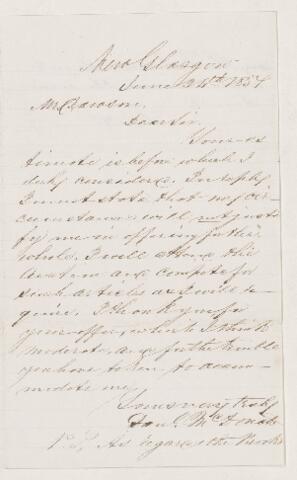 New Glasgow
June 24th 1857
Mr Dawson,
Dear Sir
Your es
timate is before which I
duly considered. In reply
I must state that my cir
cumstances will not justi
fy me in offering for the
whole. I will attend the
auction and compete for
such articles as I will re
quire. I thank you for
your offer, which I think
moderate, and for the trouble
you have taken to accom
modate me
Yours very truly
Danl McDonald
P.S. As regards the Books